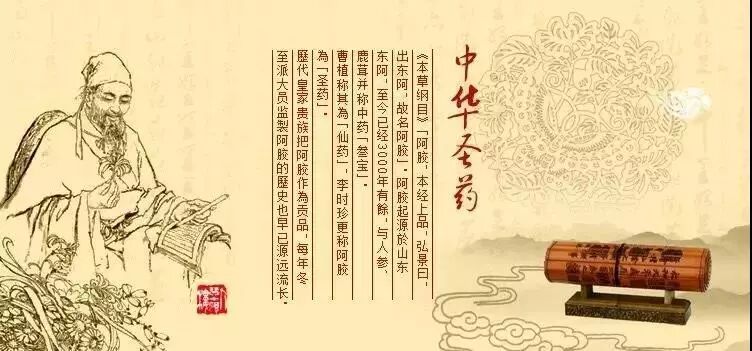 中华圣药
《本草纲目》「阿胶，本经上品，弘景曰，
出东阿，故名阿胶」。阿胶起源於山东
东阿，至今已经3000年有餘，与人参、
鹿茸并称中药「叁宝」。
曹植称其為「仙药」，李时珍更称阿胶
為「圣药」。
歷代皇家贵族把阿胶作為贡品，每年冬
至派大员监製阿胶的歷史也早已源远流长。